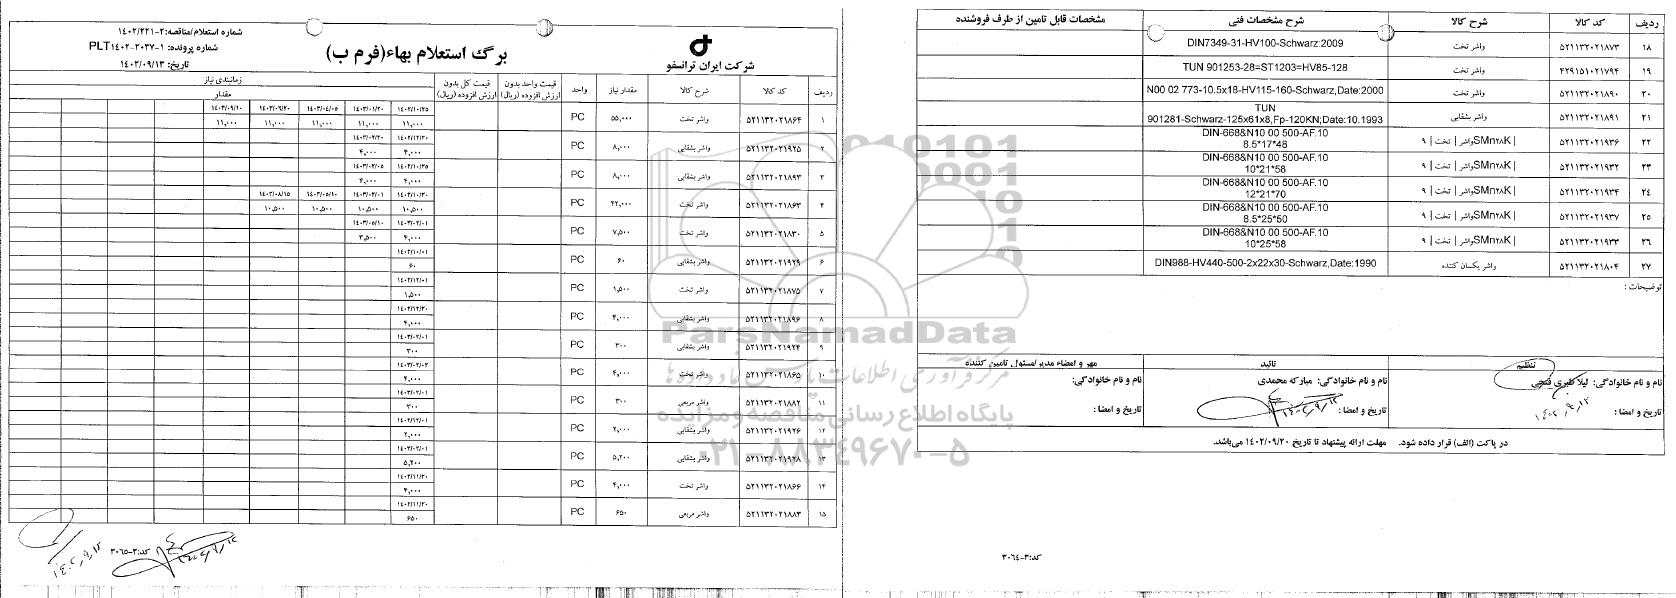 شماره استعلام/مناقصه:۲-۱۴۰۲/۲۲۱
شماره پرونده: ۱-۲۰۳۷-۱۴۰۲PLT
تاریخ: ۱۴۰۲/۰۹/۱۳
برگ استعلام بهاء(فرم ب)
شرکت ایران ترانسفو
ردیف کد کالا شرح کالا مقدار نیاز واحد قیمت واحد بدون ارزش افزوده (ریال) قیمت کل بدون ارزش افزوده (ریال) زمانبندی نیاز
مقدار
۱ ۵۲۱۱۳۲۰۲۱۸۶۴ واشر تخت ۵۵,۰۰۰ PC ۱۴۰۲/۱۰/۲۵ ۱۴۰۳/۰۱/۲۰ ۱۴۰۳/۰۴/۰۵ ۱۴۰۳/۰۶/۲۰ ۱۴۰۳/۰۹/۱۰
۱۱,۰۰۰ ۱۱,۰۰۰ ۱۱,۰۰۰ ۱۱,۰۰۰ ۱۱,۰۰۰
۲ ۵۲۱۱۳۲۰۲۱۹۲۵ واشر بشقابی ۸,۰۰۰ PC ۱۴۰۲/۱۲/۲۰ ۱۴۰۳/۰۲/۲۰
۴,۰۰۰ ۴,۰۰۰
۳ ۵۲۱۱۳۲۰۲۱۸۹۳ واشر بشقابی ۸,۰۰۰ PC ۱۴۰۲/۱۰/۲۵ ۱۴۰۳/۰۲/۰۵
۴,۰۰۰ ۴,۰۰۰
۴ ۵۲۱۱۳۲۰۲۱۸۶۳ واشر تخت ۴۲,۰۰۰ PC ۱۴۰۲/۱۰/۲۰ ۱۴۰۳/۰۲/۰۱ ۱۴۰۳/۰۵/۱۰ ۱۴۰۳/۰۸/۱۵
۱۰,۵۰۰ ۱۰,۵۰۰ ۱۰,۵۰۰ ۱۰,۵۰۰
۵ ۵۲۱۱۳۲۰۲۱۸۳۰ واشر تخت ۷,۵۰۰ PC ۱۴۰۳/۰۲/۰۱ ۱۴۰۳/۰۵/۱۰
۴,۰۰۰ ۳,۵۰۰
۶ ۵۲۱۱۳۲۰۲۱۹۲۹ واشر بشقابی ۶۰ PC ۱۴۰۲/۱۰/۰۱
۶۰
۷ ۵۲۱۱۳۲۰۲۱۸۷۵ واشر تخت ۱,۵۰۰ PC ۱۴۰۲/۱۲/۰۱
۱,۵۰۰
۸ ۵۲۱۱۳۲۰۲۱۸۹۶ واشر بشقابی ۴,۰۰۰ PC ۱۴۰۲/۱۲/۲۰
۴,۰۰۰
۹ ۵۲۱۱۳۲۰۲۱۹۲۴ واشر بشقابی ۳۰۰ PC ۱۴۰۳/۰۲/۰۱
۳۰۰
۱۰ ۵۲۱۱۳۲۰۲۱۸۶۵ واشر تخت ۴,۰۰۰ PC ۱۴۰۳/۰۲/۰۲
۴,۰۰۰
۱۱ ۵۲۱۱۳۲۰۲۱۸۸۲ واشر مربعی ۳۰۰ PC ۱۴۰۳/۰۲/۰۱
۳۰۰
۱۲ ۵۲۱۱۳۲۰۲۱۹۲۶ واشر بشقابی ۲,۰۰۰ PC ۱۴۰۲/۱۲/۰۱
۲,۰۰۰
۱۳ ۵۲۱۱۳۲۰۲۱۹۲۸ واشر بشقابی ۵,۲۰۰ PC ۱۴۰۳/۰۲/۰۱
۵,۲۰۰
۱۴ ۵۲۱۱۳۲۰۲۱۸۶۶ واشر تخت ۴,۰۰۰ PC ۱۴۰۲/۱۱/۲۰
۴,۰۰۰
۱۵ ۵۲۱۱۳۲۰۲۱۸۸۳ واشر مربعی ۶۵۰ PC ۱۴۰۲/۱۱/۲۰
۶۵۰
کد:۳-۳۰۶۵
ردیف کد کالا شرح کالا شرح مشخصات فنی مشخصات قابل تامین از طرف فروشنده
۱۸ ۵۲۱۱۳۲۰۲۱۸۷۳ واشر تخت DIN7349-31-HV100-Schwarz:2009
۱۹ ۴۲۹۱۵۱۰۲۱۷۹۴ واشر تخت TUN 901253-28=ST1203=HV85-128
۲۰ ۵۲۱۱۳۲۰۲۱۸۹۰ واشر تخت N00 02 773-10.5x18-HV115-160-Schwarz,Date:2000
۲۱ ۵۲۱۱۳۲۰۲۱۸۹۱ واشر بشقابی TUN
901281-Schwarz-125x61x8,Fp-120KN;Date:10.1993
۲۲ ۵۲۱۱۳۲۰۲۱۹۳۶ | SMn۲۸Kواشر | تخت | ۹ DIN-668&N10 00 500-AF.10
8.5*17*48
۲۳ ۵۲۱۱۳۲۰۲۱۹۳۲ | SMn۲۸Kواشر | تخت | ۹ DIN-668&N10 00 500-AF.10
10*21*58
۲۴ ۵۲۱۱۳۲۰۲۱۹۳۴ | SMn۲۸Kواشر | تخت | ۹ DIN-668&N10 00 500-AF.10
12*21*70
۲۵ ۵۲۱۱۳۲۰۲۱۹۳۷ | SMn۲۸Kواشر | تخت | ۹ DIN-668&N10 00 500-AF.10
8.5*25*50
۲۶ ۵۲۱۱۳۲۰۲۱۹۳۳ | SMn۲۸Kواشر | تخت | ۹ DIN-668&N10 00 500-AF.10
10*25*58
۲۷ ۵۲۱۱۳۲۰۲۱۸۰۴ واشر یکسان کننده DIN988-HV440-500-2x22x30-Schwarz,Date:1990
توضیحات :
تنظیم تائید مهر و امضاء مدیر/مسئول تامین کننده
نام و نام خانوادگی: لیلا نام و نام خانوادگی: مبارکه محمدی نام و نام خانوادگی:
تاریخ و امضا : ۱۴۰۲,۹,۱۳ تاریخ و امضا : تاریخ و امضا :
در پاکت (الف) قرار داده شود. مهلت ارائه پیشنهاد تا تاریخ ۱۴۰۲/۰۹/۲۰ می‌باشد.
کد:۳-۳۰۶۴
ParsNamadData
پایگاه اطلاع رسانی مناقصه و مزایده
۰۲۱-۸۸۳۴۹۶۷۰-۵